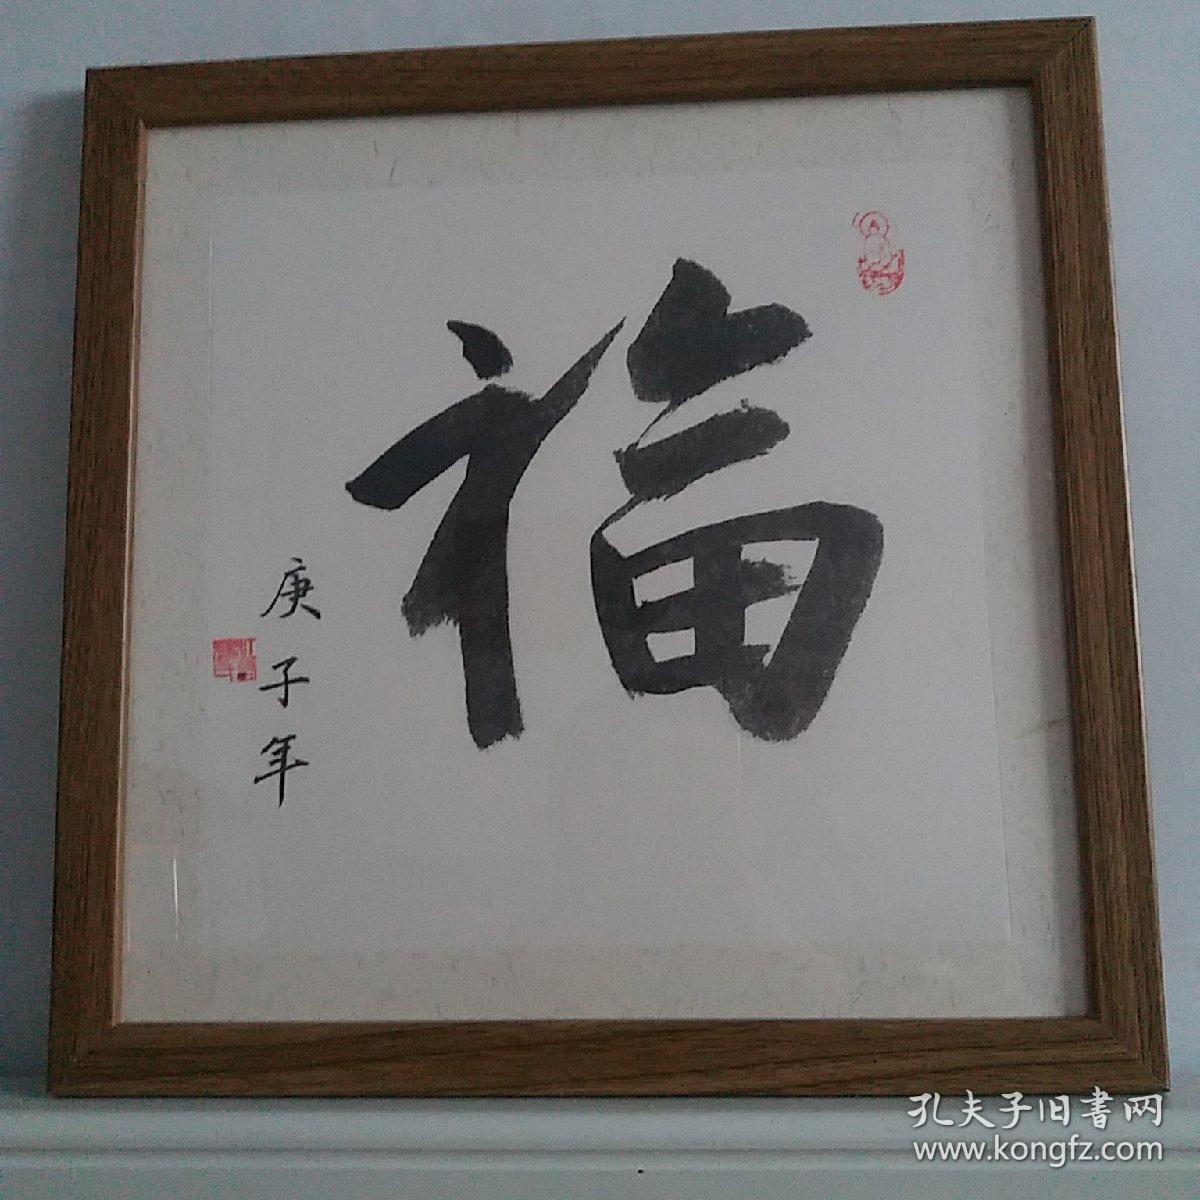 福
庚子年
孔夫子旧書网
www.kongfz.com